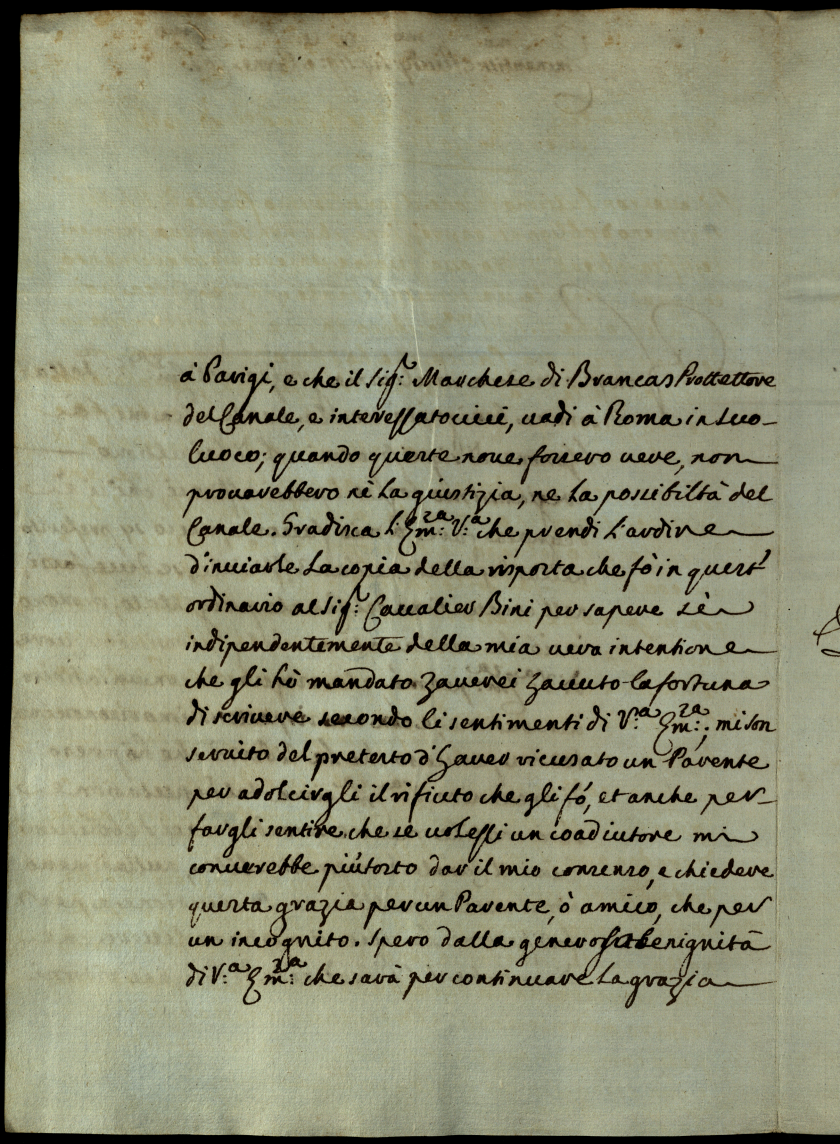 à Parigi, e che il Sig.r Marchese di Brancas Prottettore
del Canale, e interessatocivi, vadi à Roma in suo
luoco; quando queste nove fossero vere, non
provarebbero nè la giustizia, ne la possibiltà del
Canale. Gradisca l'Em.za V.a che prendi l'ardire
d'inviarle la copia della risposta che fò in quest'
ordinario al Sig.r Cavalier Bini per sapere sè
indipendentemente della mia vera intentione
che gli hò mandato haverei havuto la fortuna
di scrivere secondo li sentimenti di V.a Em.za; mi son
servito del pretesto d'haver ricusato un Parente
per adolcirgli il rifiuto che gli fó, et anche per
fargli sentire che se volessi un coadiutore mi
converebbe piùtosto dar il mio consenso, e chiedere
questa grazia per un Parente, ò amico, che per
un incognito. Spero dalla generosa benignità
di V.a Em.za che sarà per continuare la grazia